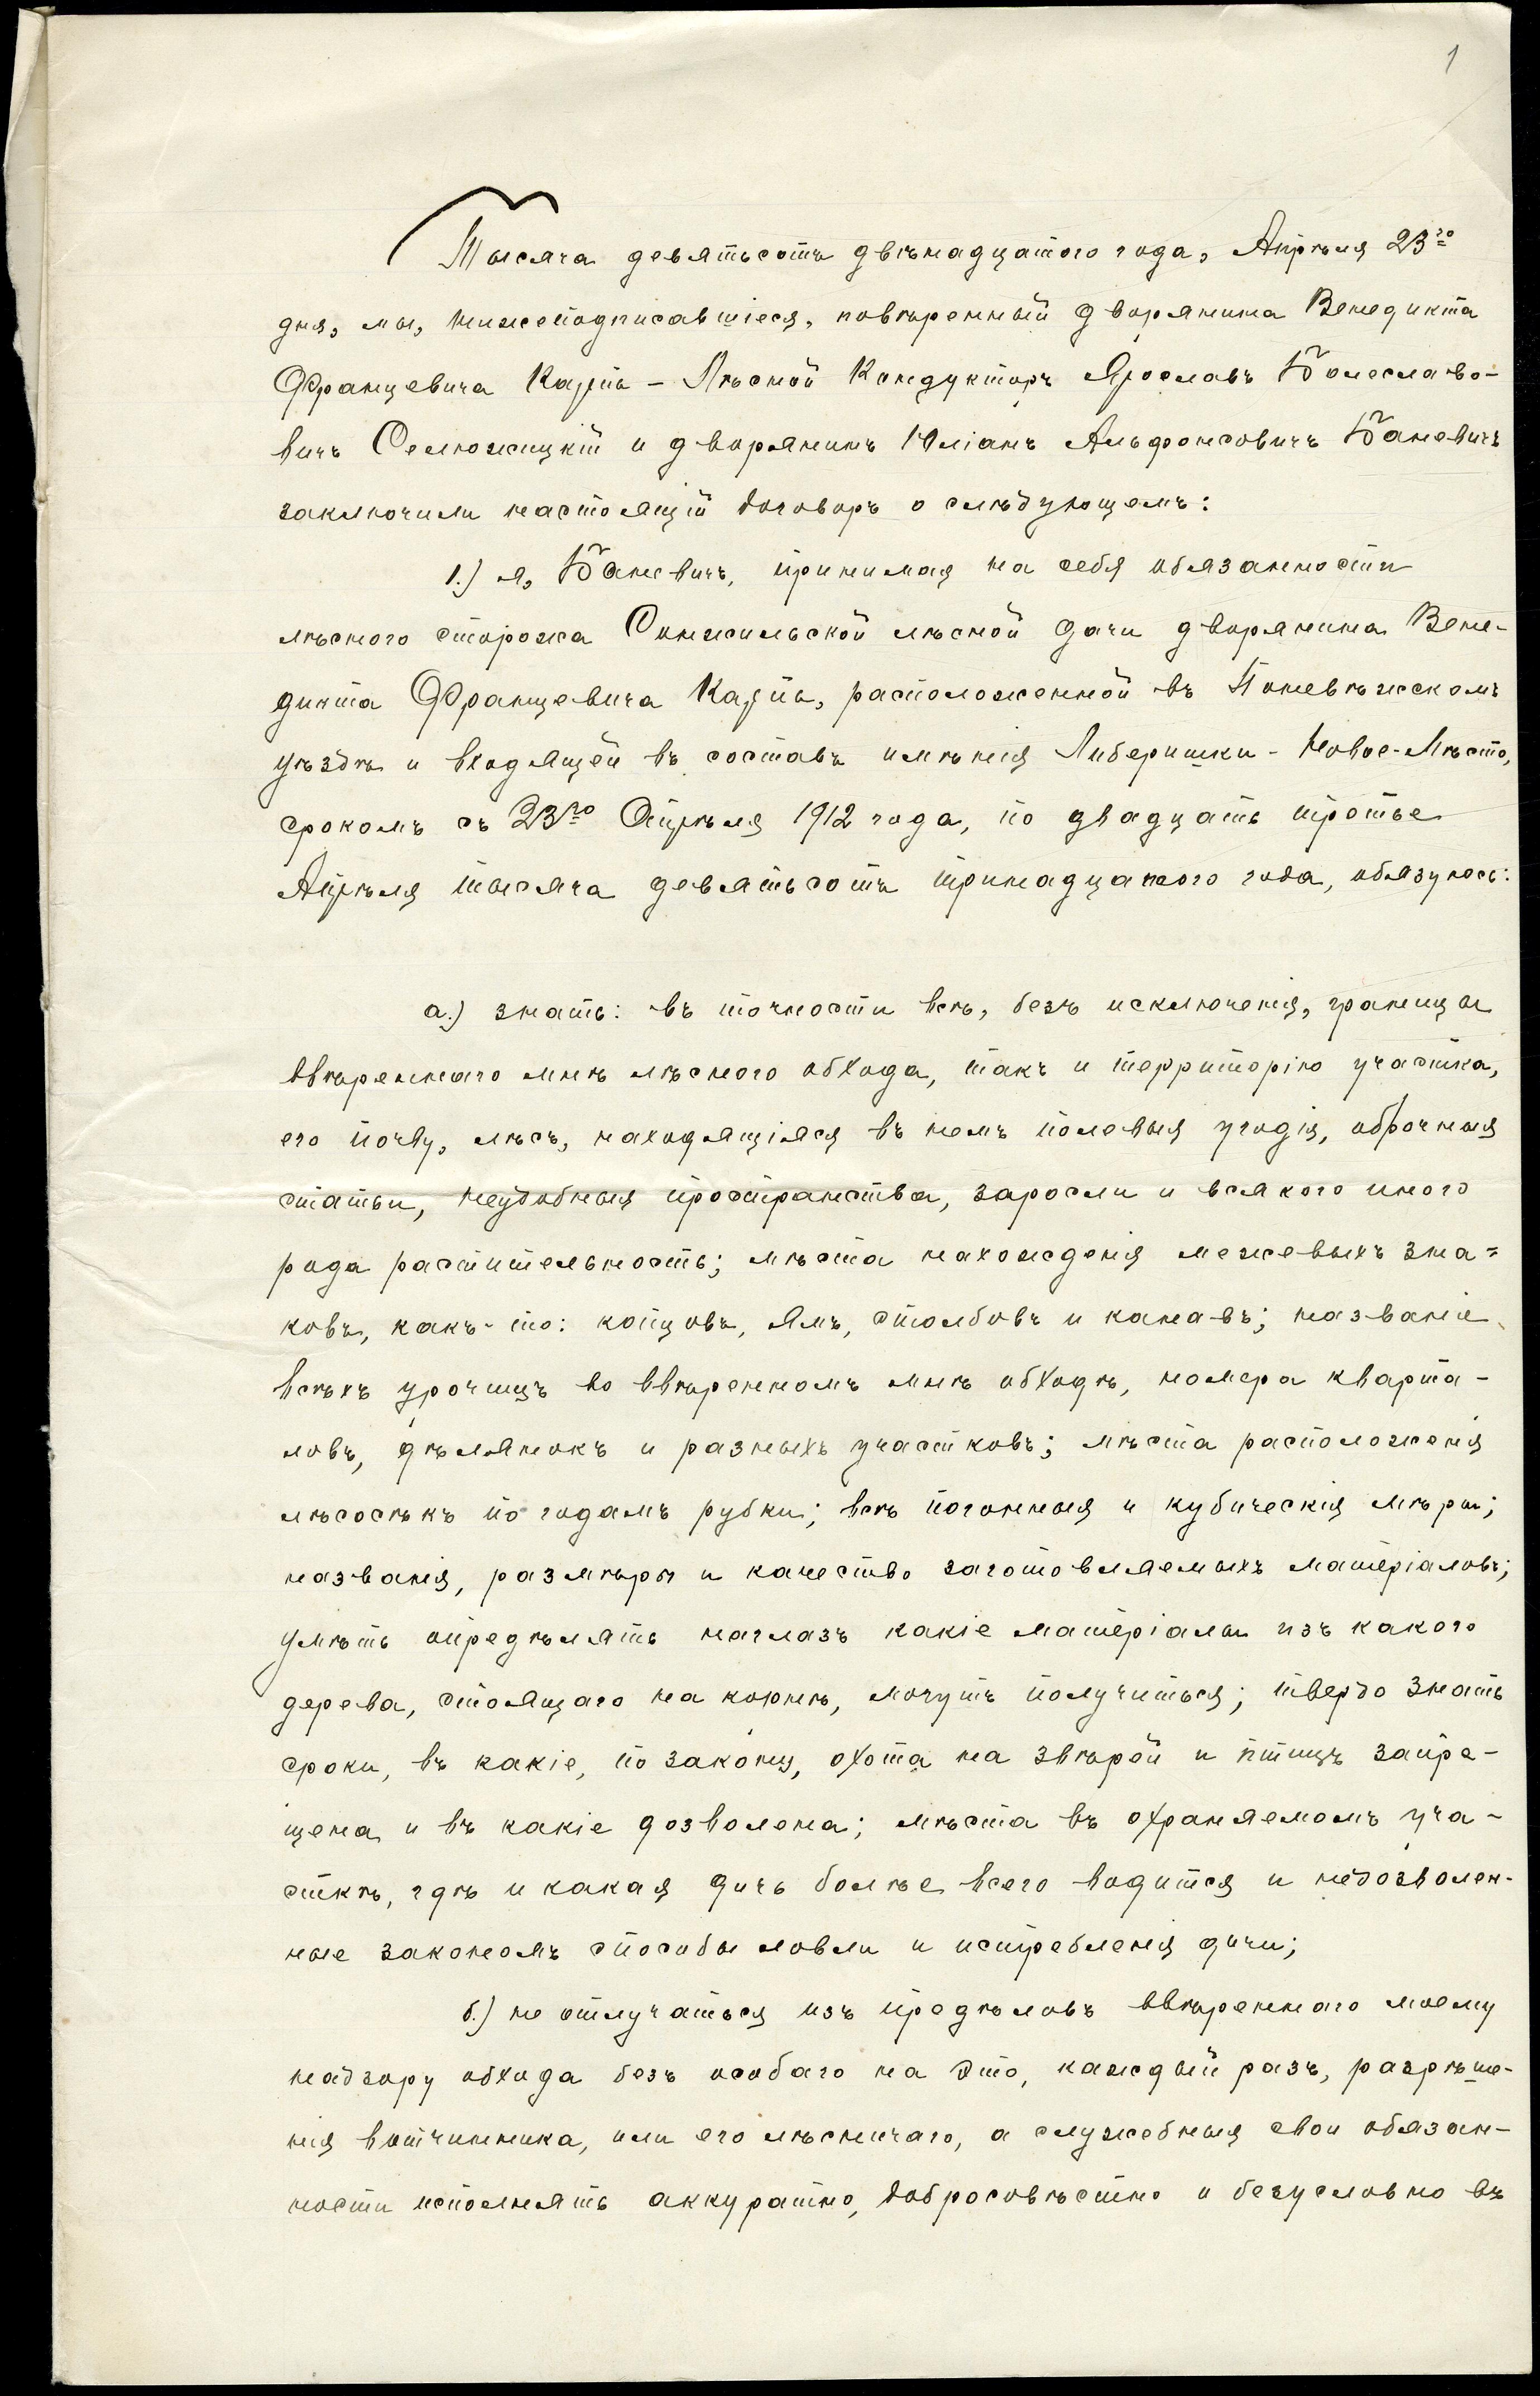 1
Тысяча девятьсотъ двѣнадцатого года, Апрѣля 23го
дня, мы, нижеподписавшіеся, повѣренный дворянина Венедикта
Францевича Карпь - Лѣсной Кондукторъ Ярославъ Болеславо-
вичъ Селюжицкій и дворянинъ Юліанъ Альфонсовичъ Баневичъ
заключили настоящій договоръ о слѣдующемъ:
1.) я, Баневичъ, принимая на себя обязанности
лѣсного сторожа Сонжильской лѣсной дачи дворянина Вене-
дикта Францевича Карпь, расположенной въ Поневѣжскомъ
уѣздѣ и входящей въ составъ имѣнія Либеришки - Новое-Мѣсто,
срокомъ съ 23го Апрѣля 1912 года, по двадцать третье
Апрѣля тысяча девятьсотъ тринадцатого года, обязуюсь:
а.) знать: въ точности всѣ, безъ исключенія, границы
ввѣреннаго мнѣ лѣсного обхода, такъ и территорію участка,
его почву, лѣсъ, находящіяся въ немъ полевыя угодія, оброчныя
статьи, неудобныя пространства, заросли и всякого иного
рода растительность; мѣста нахожденія межевыхъ зна=
ковъ, какъ-то: копцовъ, ямъ, столбовъ и канавъ; названіе
всѣхъ урочищъ во ввѣренномъ мнѣ обходѣ, номера кварта-
ловъ, дѣлянокъ и разныхъ участковъ; мѣста расположенія
лѣсосѣкъ по годамъ рубки; всѣ погонныя и кубическія мѣры;
названія, размѣры и качество заготовляемыхъ матеріаловъ;
умѣть опредѣлять наглазъ какіе матеріалы изъ какого
дерева, стоящаго на корнѣ, могутъ получиться; твердо знать
сроки, въ какіе, по закону, охота на звѣрей и птицъ запре-
щена и въ какіе дозволена; мѣста въ охраняемомъ уча-
сткѣ, гдѣ и какая дичь болѣе всего водится и недозволен-
ные закономъ способы ловли и истребленія дичи;
б.) не отлучаться изъ предѣловъ ввѣреннаго моему
надзору обхода безъ особаго на это, каждый разъ, разрѣше-
нія вотчинника, или его лѣсничаго, а служебныя свои обязан-
ности исполнять аккуратно, добросовѣстно и безусловно въ